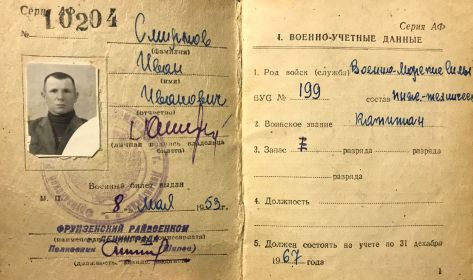 Серия АФ
№ 10204
Смирнов
(фамилия)
Иван
(имя)
Иванович
(отчество)
(личная подпись владельца
билета)
Военный билет выдан
М. П.
8 мая 1959 г.
ФРУНЗЕНСКИМ РАЙВОЕНКОМ
ЛЕНИНГРАДА
Полковник
Серия АФ
4. ВОЕННО-УЧЕТНЫЕ ДАННЫЕ
1. Род войск (служба) Военно-Морские Силы
ВУС № 199 состав
2. Воинское звание капитан
3. Запас I разряда разряда
разряда
4. Должность
5. Должен состоять на учете по 31 декабря
1967 года
1